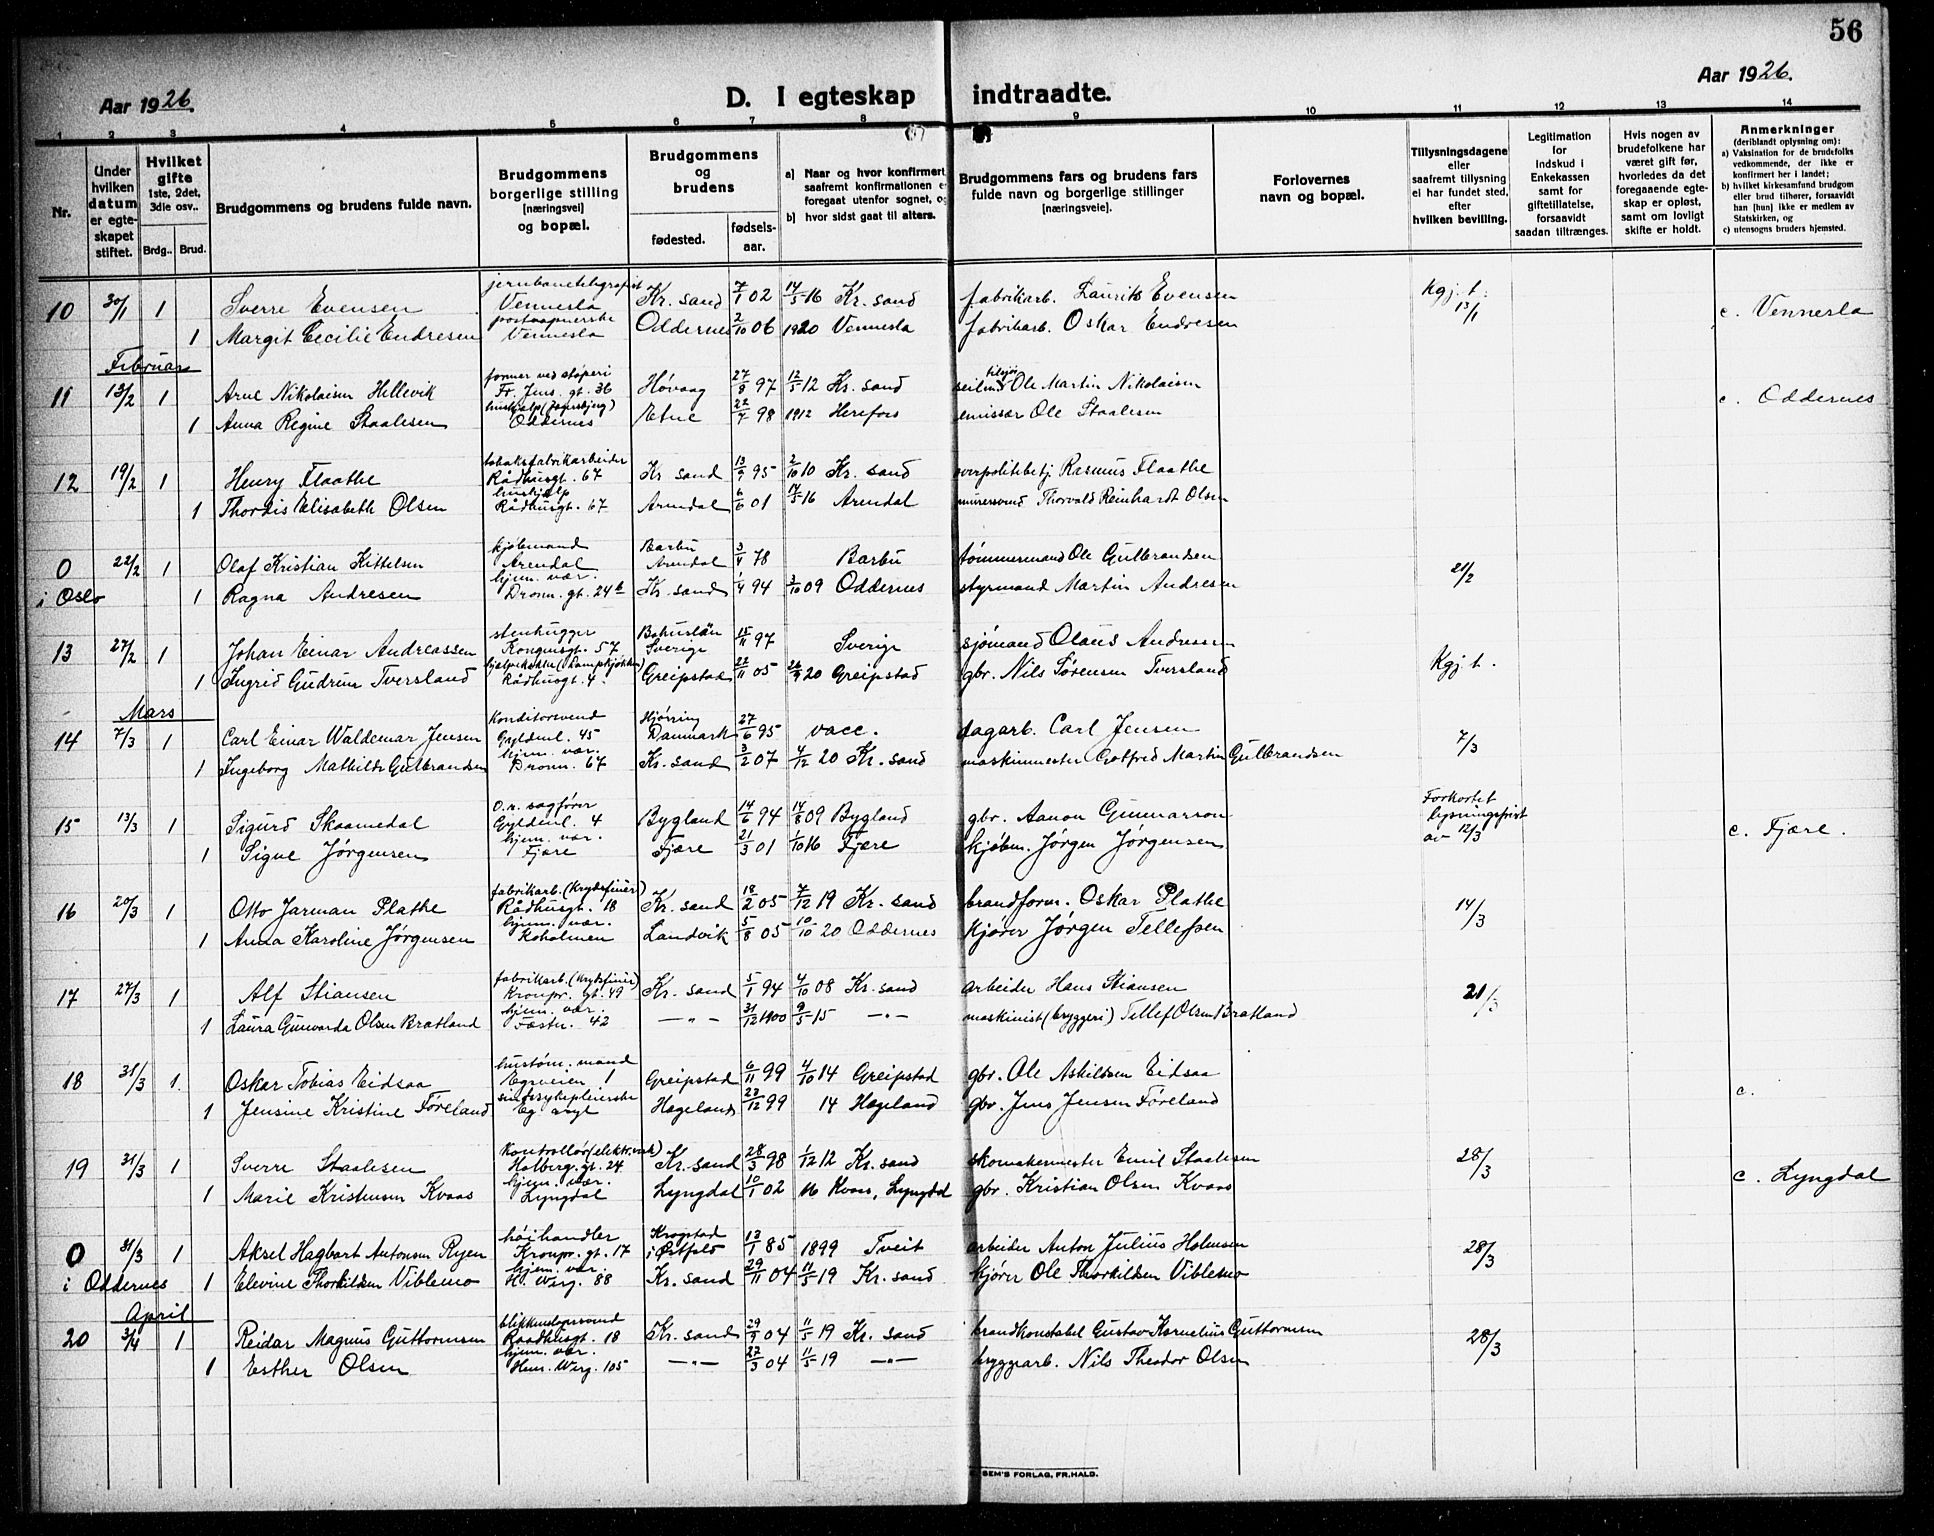 56
Aar 1926.
D. I egteskap indtraadte.
Aar 1926.
1 2 3 4 5 6 7 8 9 10 11 12 13 14
Nr.
Under hvilken datum er egteskapet stiftet.
Hvilket gifte 1ste, 2det, 3dle osv..
Brdg..
Brud.
Brudgommens og brudens fulde navn.
Brudgommens borgerlige stilling [næringsvei] og bopæl.
Brudgommens og brudens
fødested.
fødsels-aar.
a) Naar og hvor konfirmert, saafremt konfirmationen er foregaat utenfor sognet, og
b) hvor sidst gaat til alters.
Brudgommens fars og brudens fars fulde navn og borgerlige stillinger [næringsveie].
Forlovernes navn og bopæl.
Tillysningsdagene eller saafremt tillysning ei har fundet sted, efter hvilken bevilling.
Legitimation for Indskud i Enkekassen samt for giftetillatelse, forsaavidt saadan tiltrænges.
Hvis nogen av brudefolkene har været gift før, hvorledes da det foregaaende egteskap er opløst, samt om lovligt skifte er holdt.
Anmerkninger (deriblandt oplysning om):
a) Vaksination for de brudefolks vedkommende, der ikke er konfirmert her i landet;
b) hvilket kirkesamfund brudgom eller brud tilhører, forsaavidt han [hun] ikke er medlem av Statskirken, og
c) utensogns bruders hjemsted.
10 30/1 1 Sverre Evensen jernbanetelegrafist Vennesla Kr. sand 7/1 02 14/5 16 Kr. sand fabrikarb. Laurits Evensen Kgj. t. 13/1 c. Vennesla
1 Margit Cecilie Endresen Vennesla Oddernes 2/10 06 1920 Vennesla fabrikarb. Oskar Endresen
Februar
11 13/2 1 Arne Nikolaisen Hillevik former ved støperi Fr. Jens. gt. 36 Høvaag 27/8 97 12/5 12 Kr. sand Ole Martin Nikolaisen c. Oddernes
1 Anna Regine Staalesen hushjelp Oddernes Etne 22/7 98 1912 Herefoss emissær Ole Staalesen
12 19/2 1 Henry Flaathe tobaksfabrikarbeider Rådhusgt. 67 Kr sand 13/9 95 2/10 10 Kr. sand overpolitibetj Rasmus Flaathe
1 Thordis Elisabeth Olsen hushjelp Rådhusgt. 67 Arendal 6/6 01 14/5 16 Arendal murersvend Thorvald Reinhardt Olsen
0 22/2 1 Olaf Kristian Kittelsen kjøbmand Arendal Barbu Arendal 3/4 78 Barbu tømmermand Ole Gulbrandsen 21/2
i Oslo 1 Ragna Andresen hjem. vær. Dronn. gt. 24b Kr. sand 1/4 94 3/10 09 Oddernes styrmand Martin Andresen
13 27/2 1 Johan Einar Andreassen stenhugger Kongensgt. 57 Bohuslän Sverige 15/11 97 Sverige sjømand Olaus Andreassen Kgj. t.
1 Ingrid Gudrun Tversland Rådhusgt. 4. Greipstad 22/11 05 26/9 20 Greipstad gbr. Nils Sørensen Tversland
Mars
14 7/3 1 Carl Einar Waldemar Jensen Konditorsvend Gyldenl. 45 Hjørring Danmark 27/6 95 vacc. dagarb. Carl Jensen 7/3
1 Ingeborg Mathilde Gulbrandsen hjem. vær. Dronn. 67 Kr. sand 3/2 07 4/12 20 Kr. sand maskinmester Gotfred Martin Gulbrandsen
15 13/3 1 Sigurd Skaamedal o.r. sagfører Gyldenl. 4 Bygland 14/6 94 14/8 09 Bygland gbr. Aanon Gunnarson Forkortet lysningsfrist av 12/3 c. Fjære.
1 Signe Jørgensen hjem. vær. Fjære Fjære 21/3 01 1/10 16 Fjære kjøbm. Jørgen Jørgensen
16 20/3 1 Otto Jarman Plathe fabrikarb. (Krydsfiner) Rådhusgt. 18 Kr. sand 18/2 05 7/12 19 Kr. sand brandform. Oskar Plathe 14/3
1 Anna Karoline Jørgensen hjem. vær. Koholmen Landvik 5/8 05 10/10 20 Oddernes kjører Jørgen Tellefsen
17 27/3 1 Alf Stiansen fabrikarb. (Krydsfiner) Kronpr. gt. 49 Kr. sand 5/1 94 4/10 08 Kr. sand arbeider Hans Stiansen 21/3
1 Laura Gunvarda Olsen Bratland hjem. vær. Fæstn. 42 —"— 31/12 1900 9/5 15 —"— maskinist (bryggeri) Tellef Olsen Bratland
18 31/3 1. Oskar Tobias Eidsaa hustøm. mand Egsveien 1 Greipstad 6/11 99 4/10 14 Greipstad gbr. Ole Askildsen Eidsaa c.
1 Jensine Kristine Føreland sinds sykepleierske Eg asyl Hægeland 23/12 99 14 Hægeland gbr. Jens Jensen Føreland
19 31/3 1 Sverre Staalesen Kontrollør (elektr.verk) Holberg. gt. 24 Kr. sand 28/3 98 1/12 12 Kr. sand skomakermester Emil Staalesen 28/3 c. Lyngdal
1 Marie Kristensen Kvaas hjem. vær. Lyngdal Lyngdal 10/1 02 16 Kvaas, Lyngdal gbr. Kristian Olsen Kvaas
0 31/3 1 Aksel Hagbart Antonsen Ryen høihandler Kronpr. gt. 17 Krogstad i Østfold 13/1 85 1899 Tveit arbeider Anton Julius Holmsen 28/3
i Oddernes 1 Elevine Thorkildsen Viblemo hjem. vær. H. Werg. 88 Kr. sand 29/11 04 11/5 19 Kr. sand kjører Ole Thorkildsen Viblemo
April
20 3/4 1 Reidar Magnus Guttormsen blikkenslagersvend Raadhusgt. 18 Kr. sand 29/9 04 11/5 19 Kr. sand brandkonstabel Gustav Kornelius Guttormsen 28/3
1 Esther Olsen hjem. vær. Henr. Werg. 105 —"— 27/3 04 11/5 19 —"— bryggearb. Nils Theodor Olsen
SEM'S FORLAG, FR.HALD.